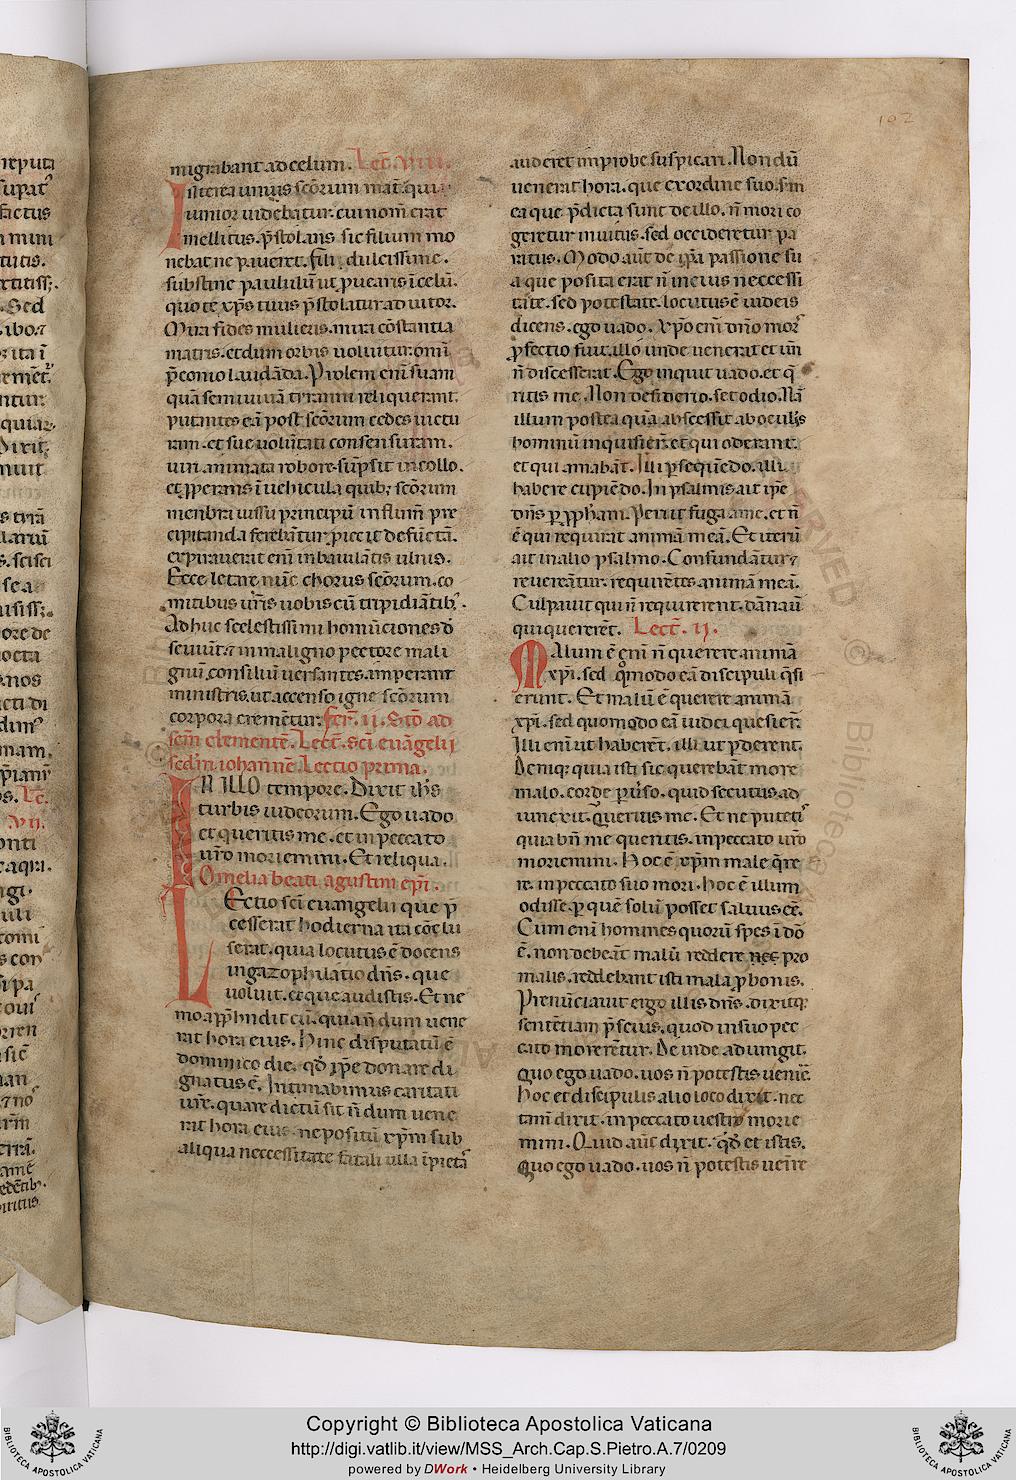 102
migrabant ad celum. Lect̄. VIII.
Interea unius sc̄orum mat̄. qui
iunior uidebatur. cui nom̄ erat
mellitus. p̄stolans sic filium mo
nebat ne paueret. fili dulcissime.
substine paululū ut puenias ī celū.
quo te xp̄s tuus p̄stolatur adiutor.
Mira fides mulieris. mira cōstantia
matris. et dum orbis uoluitur. omī
p̄conio laudāda. Prolem eni suam
quā semiuiuā tyranni reliquerant.
putantes eā post sc̄orum cedes uictu
ram. et sue uolūtati consensuram.
uiri animata robore. sūpsit in collo.
et pperans ī uehicula quib; sc̄orum
menbra iussu principū in flum̄ pre
cipitanda ferebātur. piecit defūctā.
expirauerat eni in baiulātis ulnis.
Ecce letare nūc chorus sc̄orum. co
mitibus ur̄is uobiscū tripidiātib;.
Adhuc scelestissimi homūciones
seuiūt. 7 in maligno pectore mali
gnū consiliū uersantes. imperant
ministris. ut accenso igne sc̄orum
corpora cremētur. fer̄. II. Stō ad
scm̄ clementē. Lect̄. sc̄i euāgelii
sedm̄ iohannē Lectio prima.
IN ILLO tempore. Dixit ih̄s
turbis iudeorum. Ego uado
et queritis me. et in peccato
ur̄o moriemini. Et reliqua.
Omelia beati agustini ep̄i.
Lectio sc̄i euangelii que p̄
cesserat hodierna ita cōclu
serat. quia locutus ē docens
in gazophilatio dn̄s. que
uoluit. et que audistis. Et ne
mo app̄hndit eū. quia n̄ dum uene
rat hora eius. Hinc disputatū ē
dominico die. qd̄ ip̄e donare di
gnatus ē. Intimabimus caritati
ur̄e. quare dictū sit n̄ dum uene
rat hora eius. ne positū xp̄m sub
aliqua neccessitate fatali ulla īpietā
auderet improbe suspicari. Nondū
uenerat hora. que ex ordine suo. sm
ea que p̄dicta sunt de illo. n̄ mori co
geretur inuitus. sed occideretur pa
ratus. Modo aut̄ de ip̄a passione su
a que posita erat n̄ in eius neccessi
tate. sed potestate. locutus ē iudeis
dicens. ego uado. Xp̄o eni dn̄o mors
pfectio fuit. illo unde uenerat et un̄
n̄ discesserat. Ego inquit uado. et q̄
ritis me. Non desiderio. set odio. Nā
illum postea quā abscessit ab oculis
hominū inquisierūt et qui oderant.
et qui amabāt. Illi psequēdo. illi
habere cupiēdo. In psalmis ait ip̄e
dn̄s p pp̄ham. Periit fuga a me. et n̄
ē qui requirat animā meā. Et iterū
ait in alio psalmo. Confundātur 7
reuereātur. requirētes animā meā.
Culpauit qui n̄ requirerent. dānauit
qui quererēt. Lect̄. II.
Malum ē eni n̄ querere animā
xp̄i. sed quomodo eā discipuli q̄si
erunt. Et malū ē querere animā
xp̄i. sed quomodo eā iudei quesierunt
Illi eni ut haberēt. illi ut pderent.
Deniq; quia isti sic querebāt more
malo. corde puerso. quid secutus ad
iunexit. Queritis me. Et ne putetis
quia bn̄ me queritis. in peccato ur̄o
moriemini. Hoc ē xp̄m male q̄re
re. in peccato suo mori. hoc ē illum
odisse. p quē solū posset saluus eē.
Cum eni homines quorū spes ī dō
ē. non debeāt malū reddere nec pro
malis. reddebant isti mala p bonis.
Prenūciauit ergo illis dn̄s. dixitq;
sentētiam p̄scius. quod in suo pec
cato morerētur. Deinde adiungit.
Quo ego uado. uos n̄ potestis uenire.
Hoc et discipulis alio loco dixit. nec
tam̄ dixit. in peccato uestro morie
mini. Quid aut̄ dixit. qd̄ et istis.
Quo ego uado. uos n̄ potestis uenire
Copyright © Biblioteca Apostolica Vaticana
http://digi.vatlib.it/view/MSS_Arch.Cap.S.Pietro.A.7/0209
powered by DWork • Heidelberg University Library
BIBLIOTECA APOSTOLICA VATICANA
BIBLIOTECA APOSTOLICA VATICANA